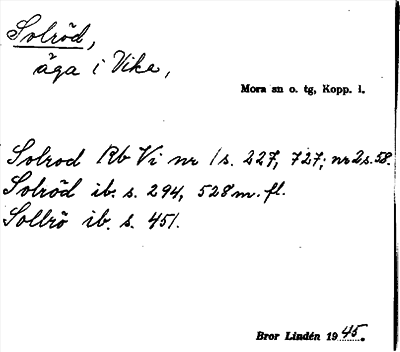 Solröd,
äga i Vika,
Mora sn o. tg, Kopp. l.
Solrod Rb Vi nr 1 s. 227, 727; nr 2 s. 58.
Solröd ib. s. 294, 528 m. fl.
Sollrö ib. s. 451.
Bror Lindén 1945.